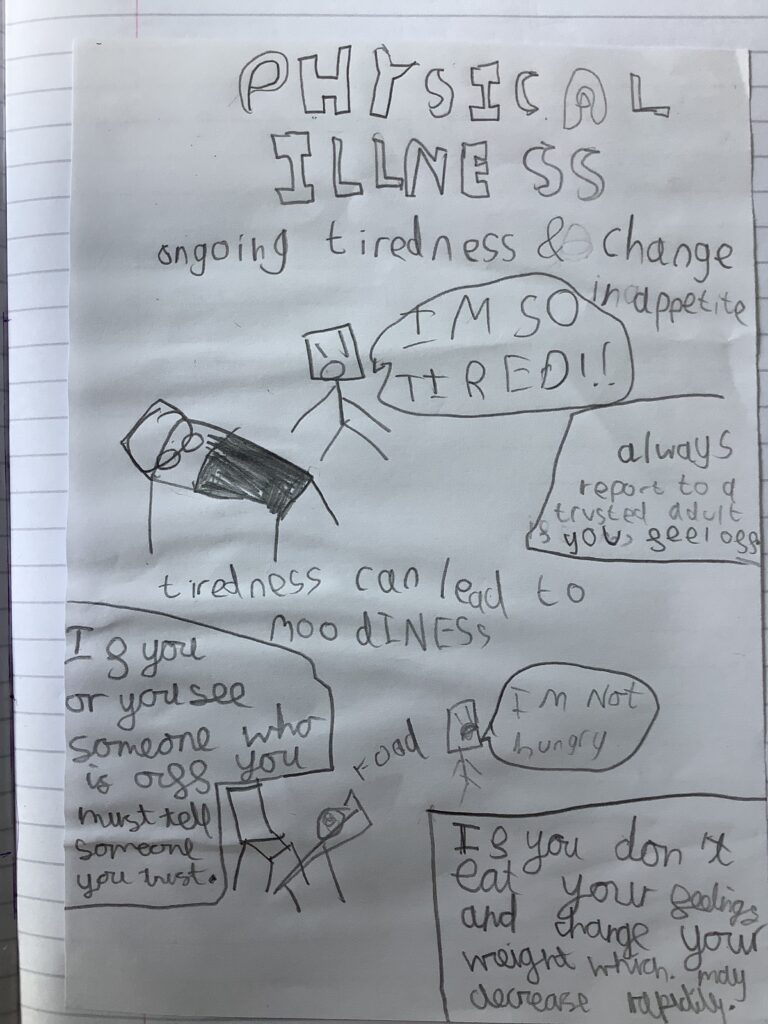 PHYSICAL
ILLNESS
ongoing tiredness & change
in appetite
I'M SO
TIRED!!
always
report to a
trusted adult
if you, feel off
tiredness can lead to
MOODINESS
If you
or you see
someone who
is off you
must tell
someone
you trust.
Food
I'm Not
hungry
If you don't
eat your feelings
and change your
weight which. may
decrease rapidily.